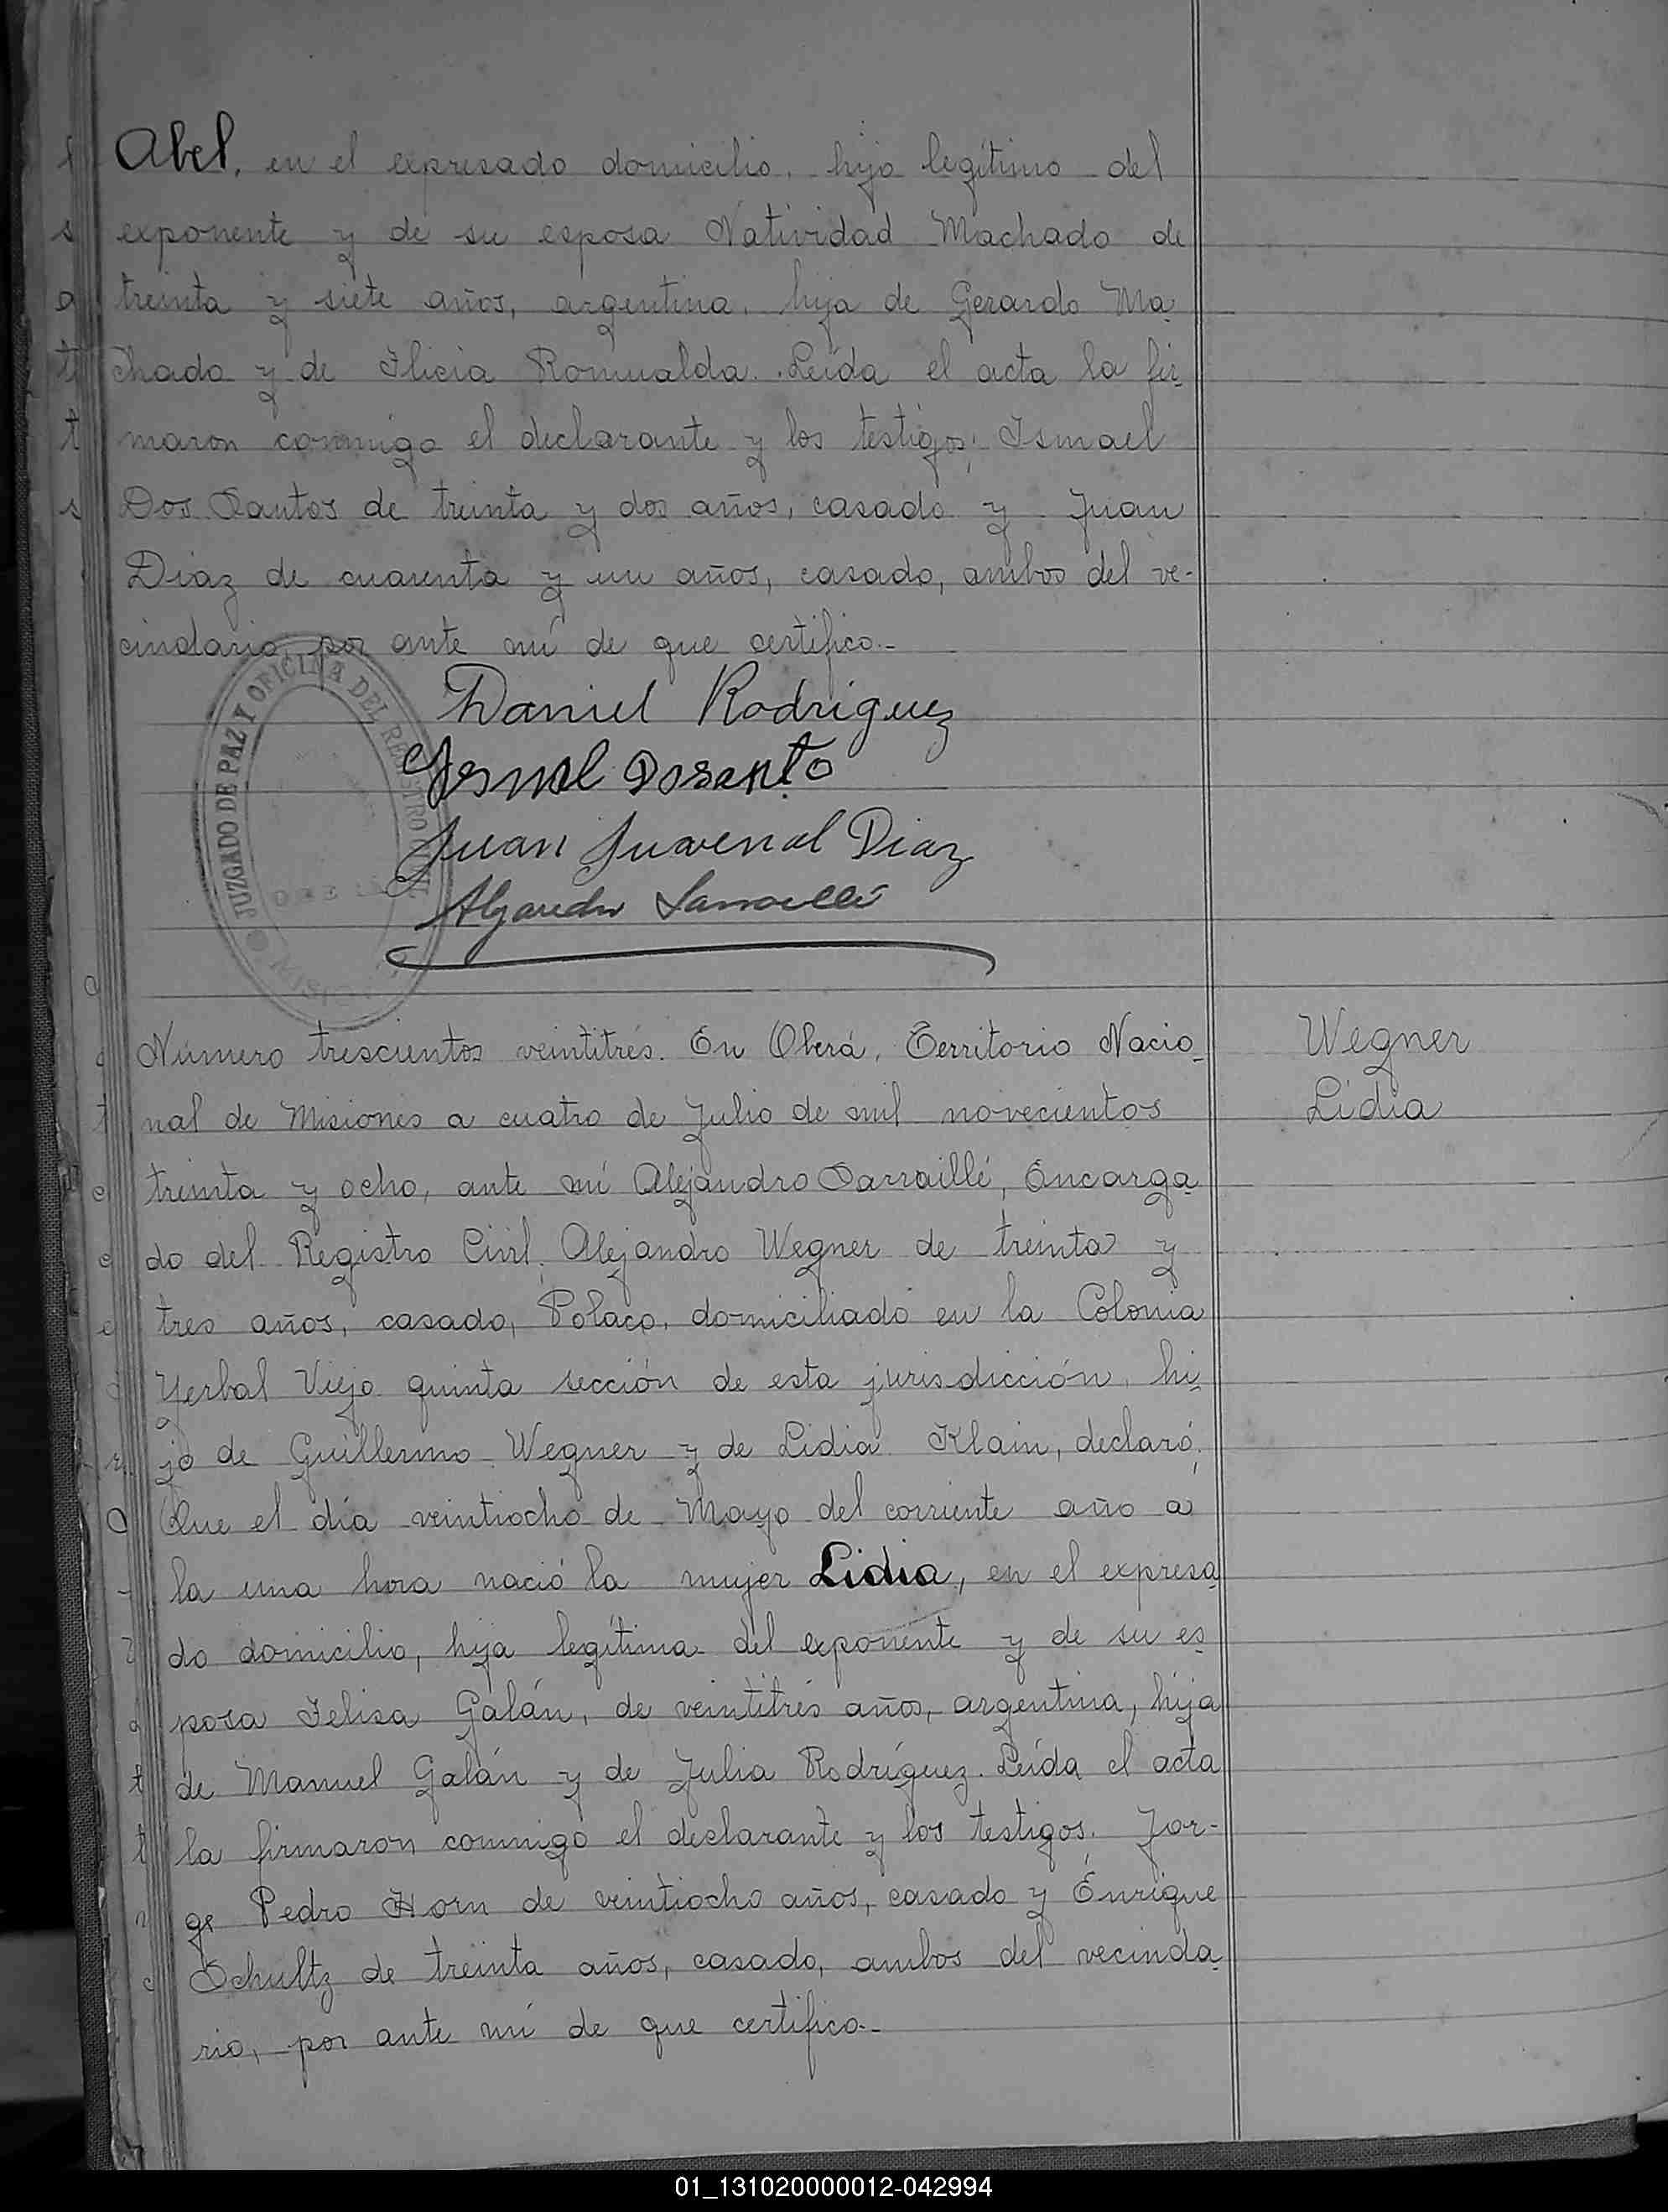 Abel, en el expresado domicilio, hijo legítimo del
exponente y de su esposa Natividad Machado de
treinta y siete años, argentina, hija de Gerardo Ma-
chado y de Ilicia Romualda. Leída el acta la fir-
maron conmigo el declarante y los testigos: Ismael
Dos Santos de treinta y dos años, casado y Juan
Diaz de cuarenta y un años, casado, ambos del ve-
cindario, por ante mí de que certifico.-
JUZGADO DE PAZ Y OFICINA DEL REGISTRO CIVIL
Daniel Rodriguez
Juan Juvenal Diaz
Número trescientos veintitrés. En Oberá, Territorio Nacio-
nal de Misiones a cuatro de Julio de mil novecientos
treinta y ocho, ante mí Alejandro Sarraillé, Encarga-
do del Registro Civil, Alejandro Wegner de treinta y
tres años, casado, Polaco, domiciliado en la Colonia
Yerbal Viejo quinta sección de esta jurisdicción, hi-
jo de Guillermo Wegner y de Lidia Klain, declaró:
Que el día veintiocho de Mayo del corriente año a
la una hora nació la mujer Lidia, en el expresa-
do domicilio, hija legítima del exponente y de su es-
posa Felisa Galán, de veintitrés años, argentina, hija
de Manuel Galán y de Julia Rodríguez. Leída el acta
la firmaron conmigo el declarante y los testigos: Jor-
ge Pedro Horn de veintiocho años, casado y Enrique
Schultz de treinta años, casado, ambos del vecinda-
rio, por ante mí de que certifico.-
Wegner
Lidia
01_131020000012-042994